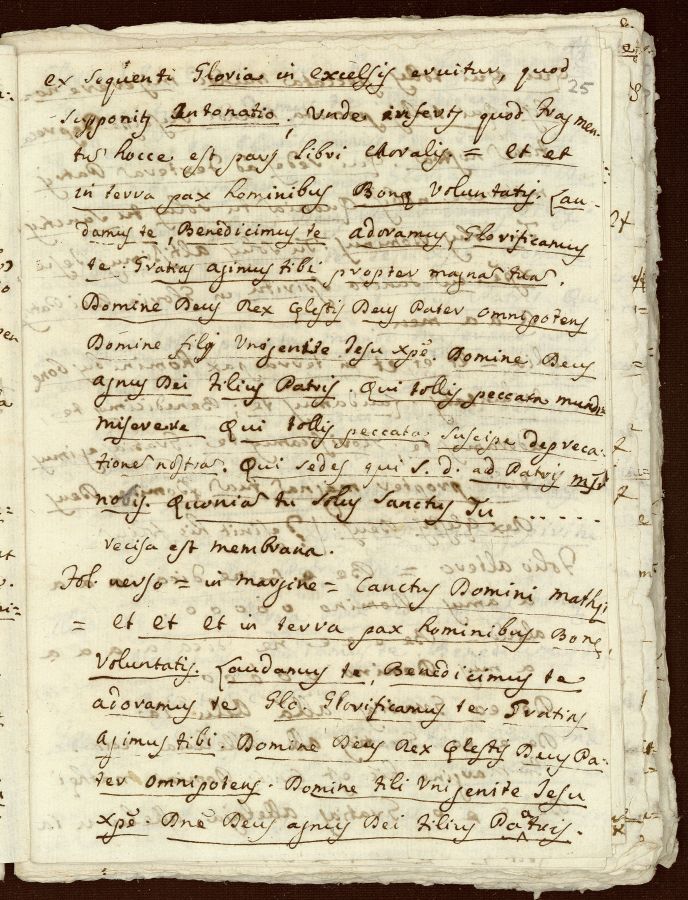 ex sequenti Gloria in excelsis eruitur, quod
25
supponit Antonatio, Unde infertur quod fragmen-
tū hocce est pars libri choralis = et et
in terra pax hominibus Bonę Voluntatis. Lau-
damus te, Benedicimus te adoramus, Glorificamus
te. Gratias agimus tibi propter magnā tuā.
Domine Deus Rex cęlestis Deus Pater omnipotens
Domine filij Unigenite Jesu xpē. Domine Deus
agnus Dei filius Patris. Qui tollis peccata mundi
miserere Qui tollis peccata suscipe depreca-
tionē nostrā. Qui sedes qui s. d. ad Patris
nobis. Quoniā tu solus sanctus Tu ......
recisa est membrana.
fol verso = in margine = Canctus Domini
= et et et in terra pax hominibus Bonę
Voluntatis. Laudamus te, Benedicimus te
adoramus te Glo. Glorificamus te Gratias
agimus tibi. Domine Deus Rex cęlestis Deus Pa-
ter omnipotens. Domine fili Unigenite Jesu
xpē. Dnē Deus agnus Dei filius Patris.